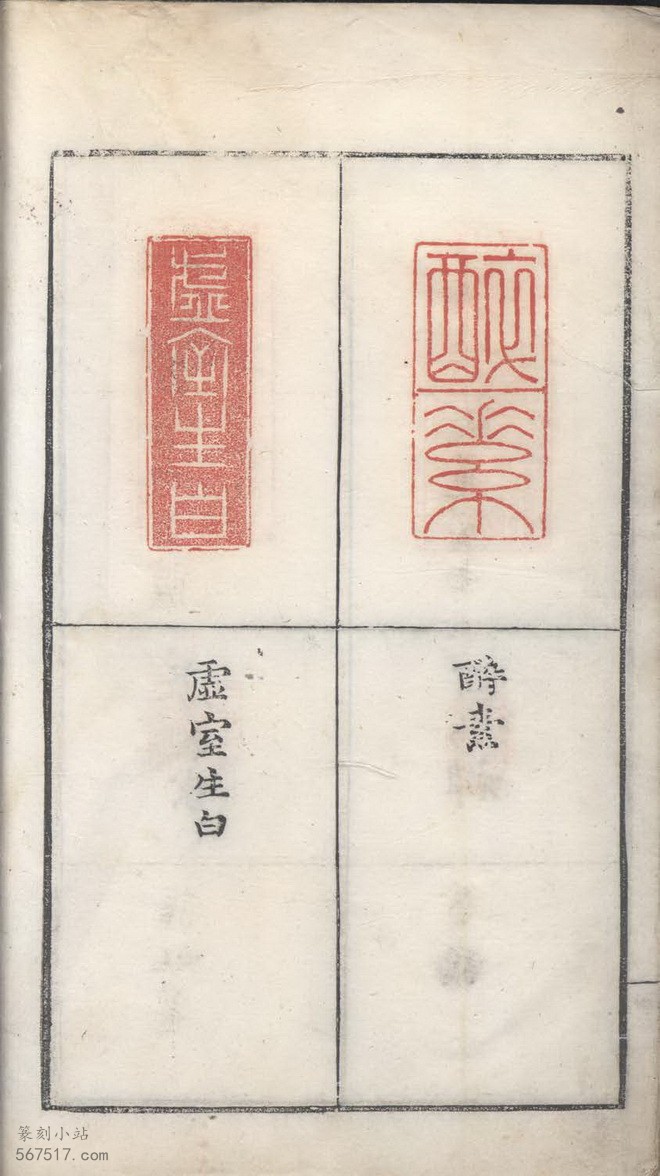 醉
醉
虛室生白
虛室生白
篆刻小站
567517.com